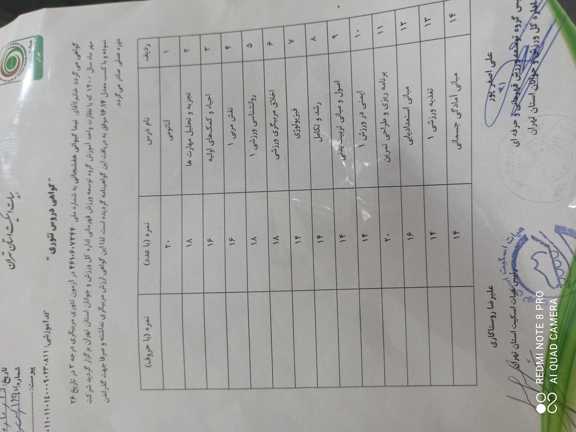 هیات اسکیت استان تهران
تاریخ:
شماره:
پیوست:
"گواهی دروس تئوری"
کد آموزشی:
گواهی می گردد خانم/آقای
به شماره ملی
در آزمون تئوری مربیگری درجه ۳ در تاریخ ۲۶
مهر ماه سال ۱۴۰۰ که با نظارت واحد آموزش گروه توسعه ورزش قهرمانی اداره کل ورزش و جوانان استان تهران برگزار گردید شرکت
نموده و با کسب معدل
موفق به دریافت این گواهینامه گردیده است. لذا این گواهی ارزش مربیگری نداشته و صرفا جهت گذراندن
دوره عملی صادر می گردد.
ردیف نام درس نمره (با عدد) نمره (با حروف)
۱ آناتومی ۲۰
۲ تجزیه و تحلیل مهارت ها ۱۸
۳ احیاء و کمک‌های اولیه ۱۶
۴ نقش مربی ۱ ۱۶
۵ روانشناسی ورزشی ۱ ۱۸
۶ اخلاق مربیگری ورزشی ۱۸
۷ فیزیولوژی ۱۴
۸ رشد و تکامل ۱۴
۹ اصول و مبانی تربیت بدنی ۱۴
۱۰ ایمنی در ورزش ۱ ۱۴
۱۱ برنامه ریزی و طراحی تمرین ۲۰
۱۲ مبانی استعدادیابی ۱۶
۱۳ تغذیه ورزشی ۱ ۱۴
۱۴ مبانی آمادگی جسمانی ۱۴
علی اصغر پور
گروه توسعه ورزش قهرمانی و حرفه ای
اداره کل ورزش و جوانان استان تهران
علیرضا روستاکاری
رئیس هیات اسکیت استان تهران
REDMI NOTE 8 PRO
AI QUAD CAMERA